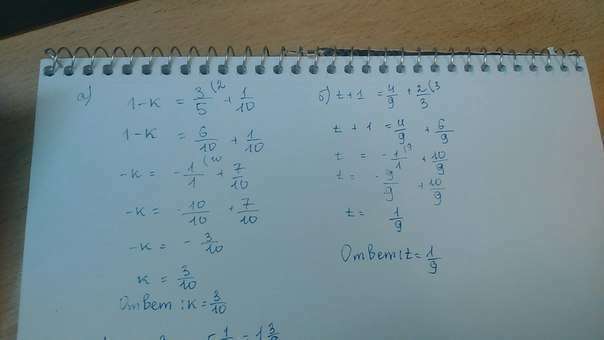 а)
1-к = 3/5 (2 + 1/10
1-к = 6/10 + 1/10
-к = -1/1 (10 + 7/10
-к = -10/10 + 7/10
-к = - 3/10
к = 3/10
Ответ: к = 3/10
б) t+1 = 4/9 + 2/3 (3
t + 1 = 4/9 + 6/9
t = -1/1 (9 + 10/9
t = -9/9 + 10/9
t = 1/9
Ответ: t = 1/9